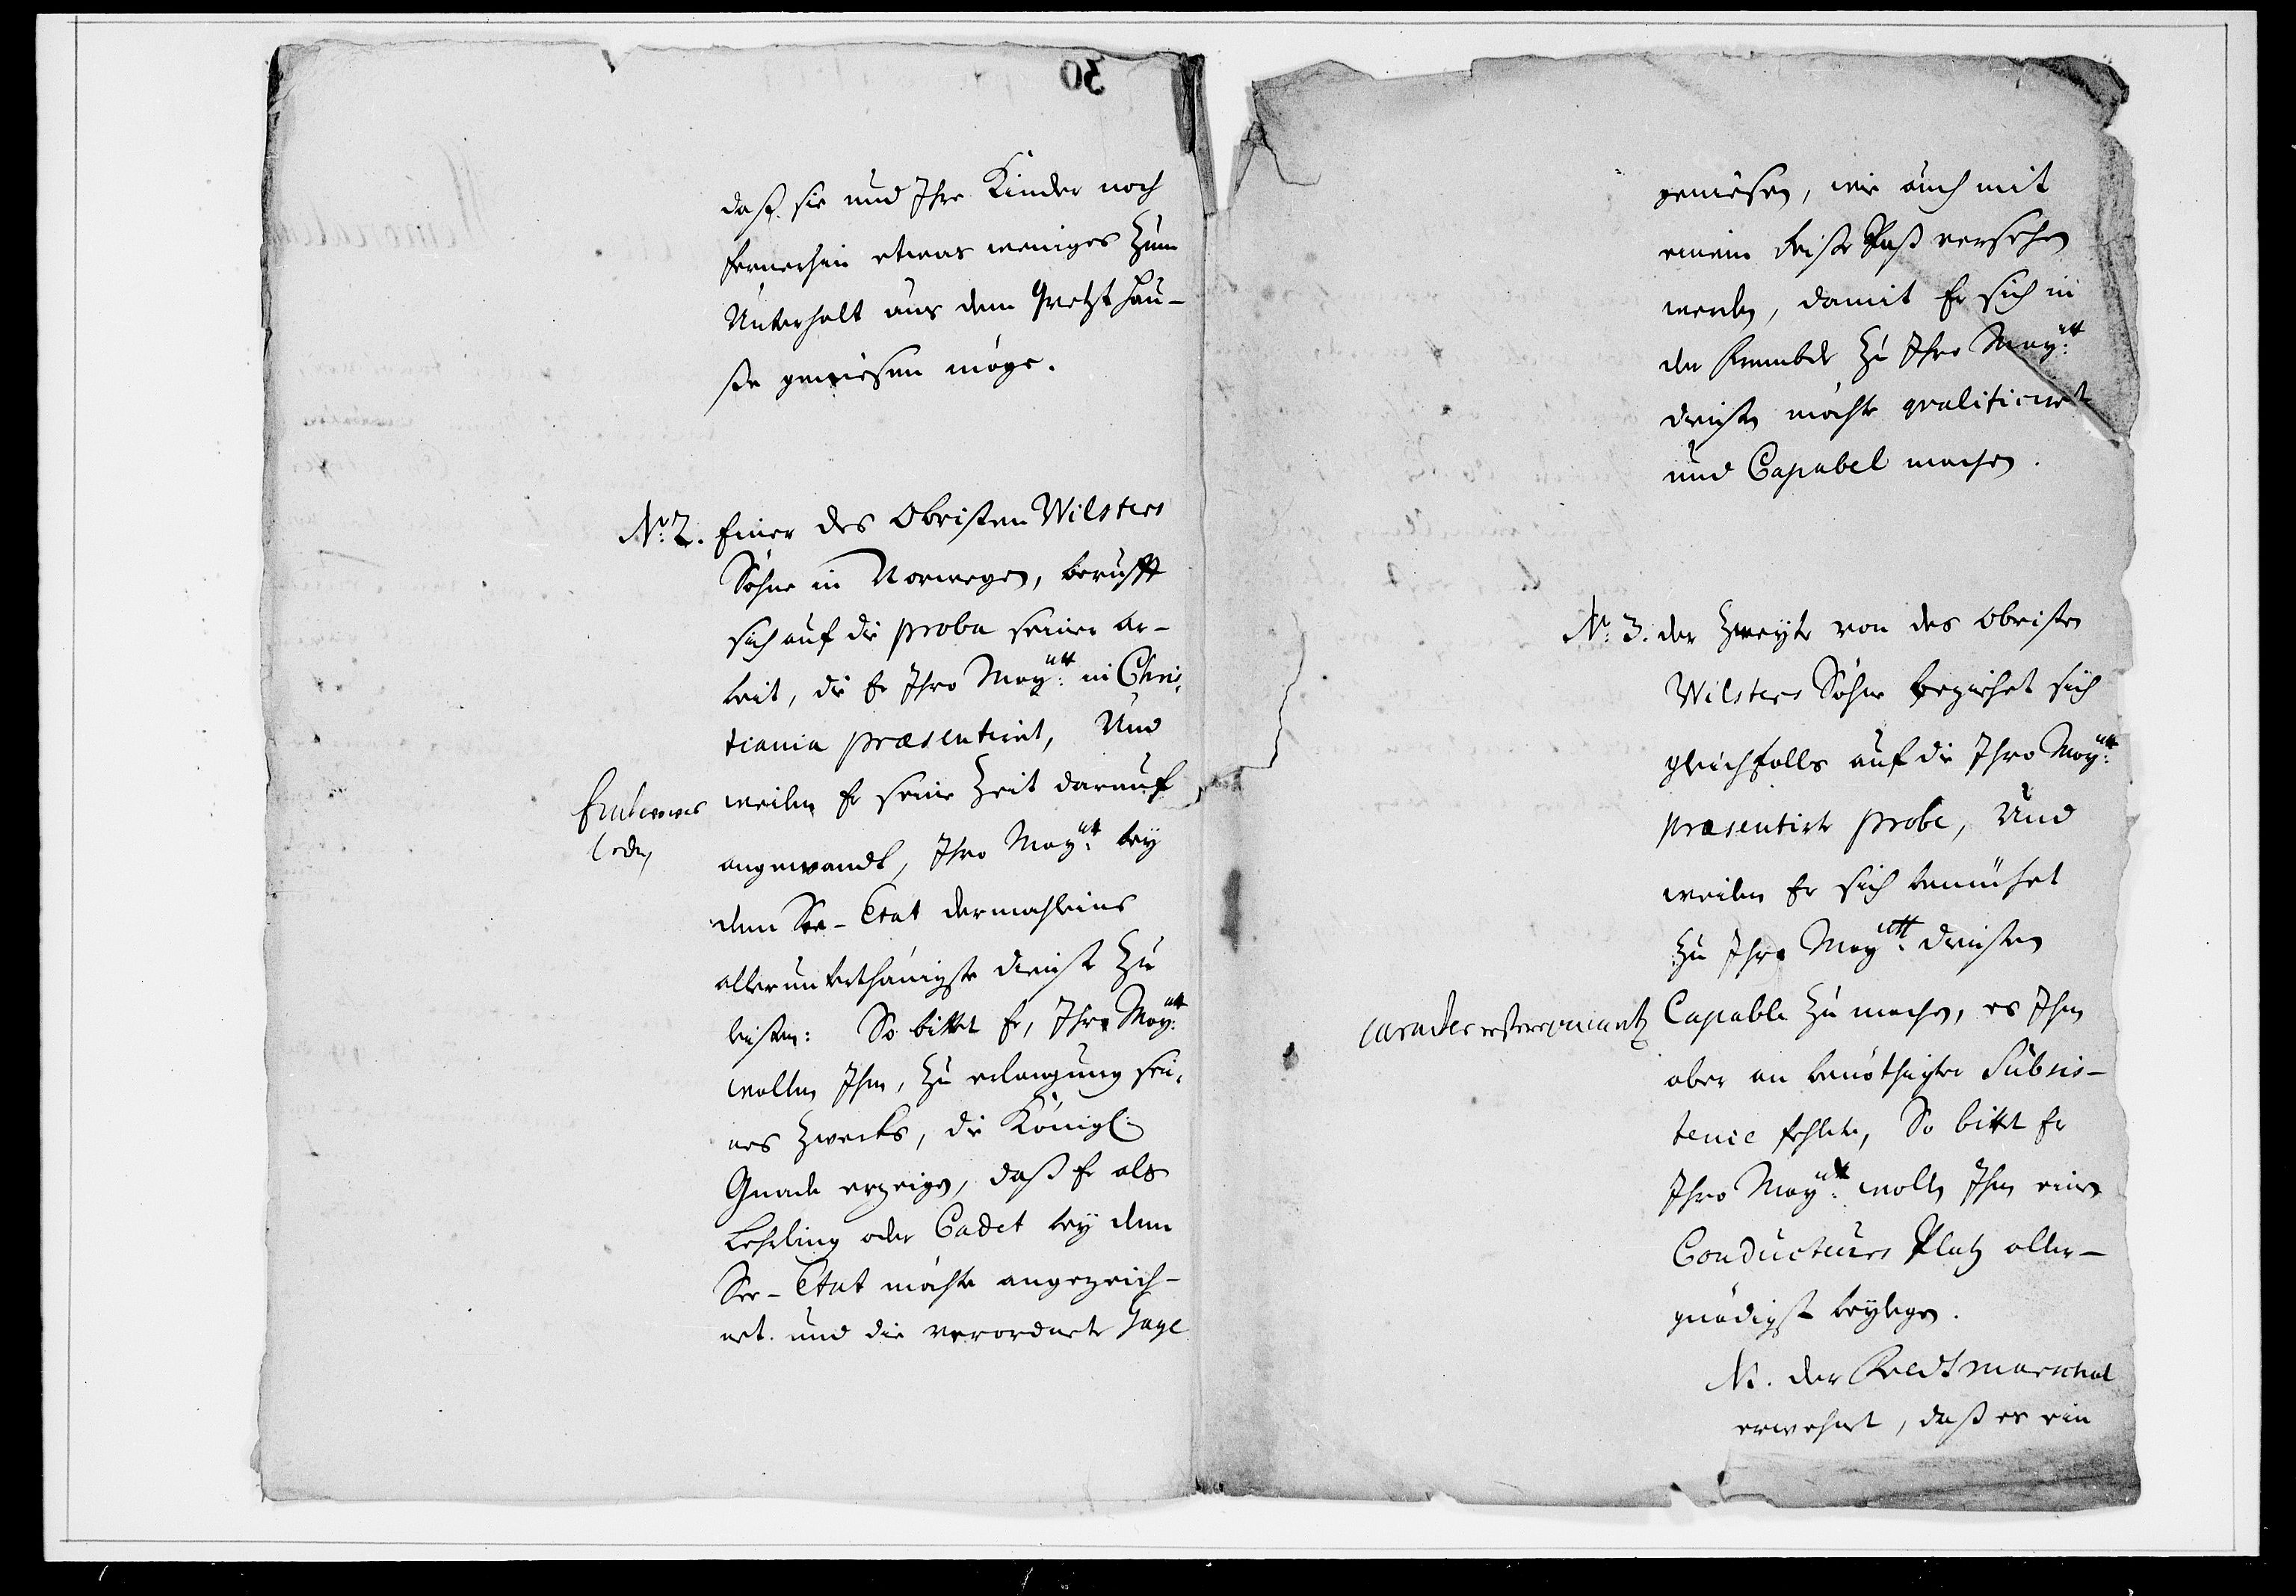 daß sie und Ihre Kinder noch
fernerhin etwas weniges zum
Unterhalt aus dem Qvæsthau-
ße geniesen möge.
No: 2. Einer des Obristen Wilsters
Söhne in Norwegen, berufft
sich auf die probe seiner ar-
beit, die Er Ihro Maytt: in Chris-
tiania præsentiret, Und
weilen Er seine Zeit darauf
angewandt, Ihro Maytt: bey
dem See-Etat dermahleins
allerunterthänigste dienste zu
leisten: So bittet Er, Ihro Maytt:
wollen Ihm, zu erlangung sei-
nes Zwecks, die Königl:
Gnade erzeigen, daß Er als
Lehrling oder Cadet bey dem
See-Etat möchte angezeich-
net und die verordnete Gage
geniesen, wie auch mit
einem Reise Paß versehen
werden, damit Er sich in
der Frembde zu Ihro Maytt:
diensten möchte qvalificiret
und Capabel machen.
No: 3. der Zweyte von des Obristen
Wilsters Söhne beziehet sich
gleichfalls auf die Ihro Maytt:
præsentirte probe, Und
weilen Er sich bemühet
zu Ihro Maytt: diensten
Capable zu machen, es Ihm
aber an benöthigter Subsis-
tence fehlete, So bittet Er
Ihro Maytt: wollen Ihm eine
Conducteurs Platz aller-
gnädigst beylegen.
NB. der Feldtmarschal
erwehnet, daß er ein